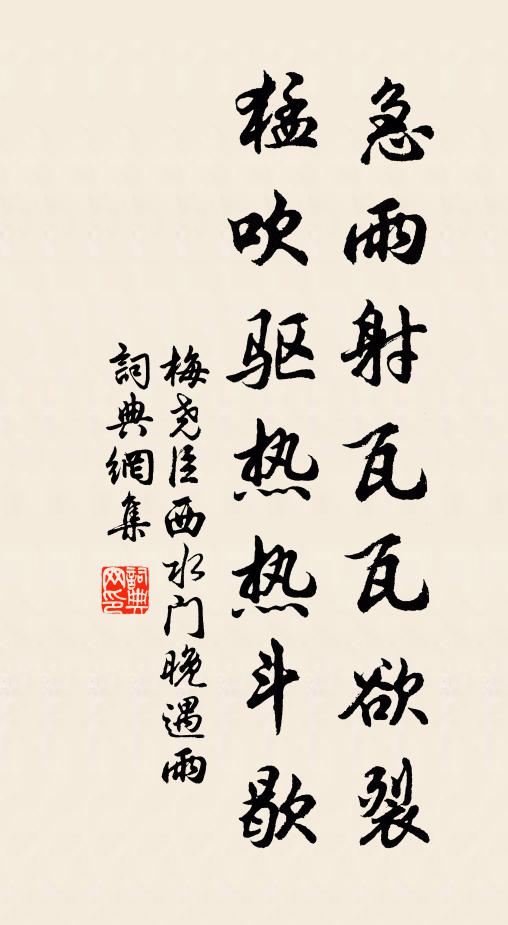 急雨射瓦瓦欲裂
猛吹驱热热斗歇
梅尧臣西水门晚遇雨
詞典網集
詞典
网印